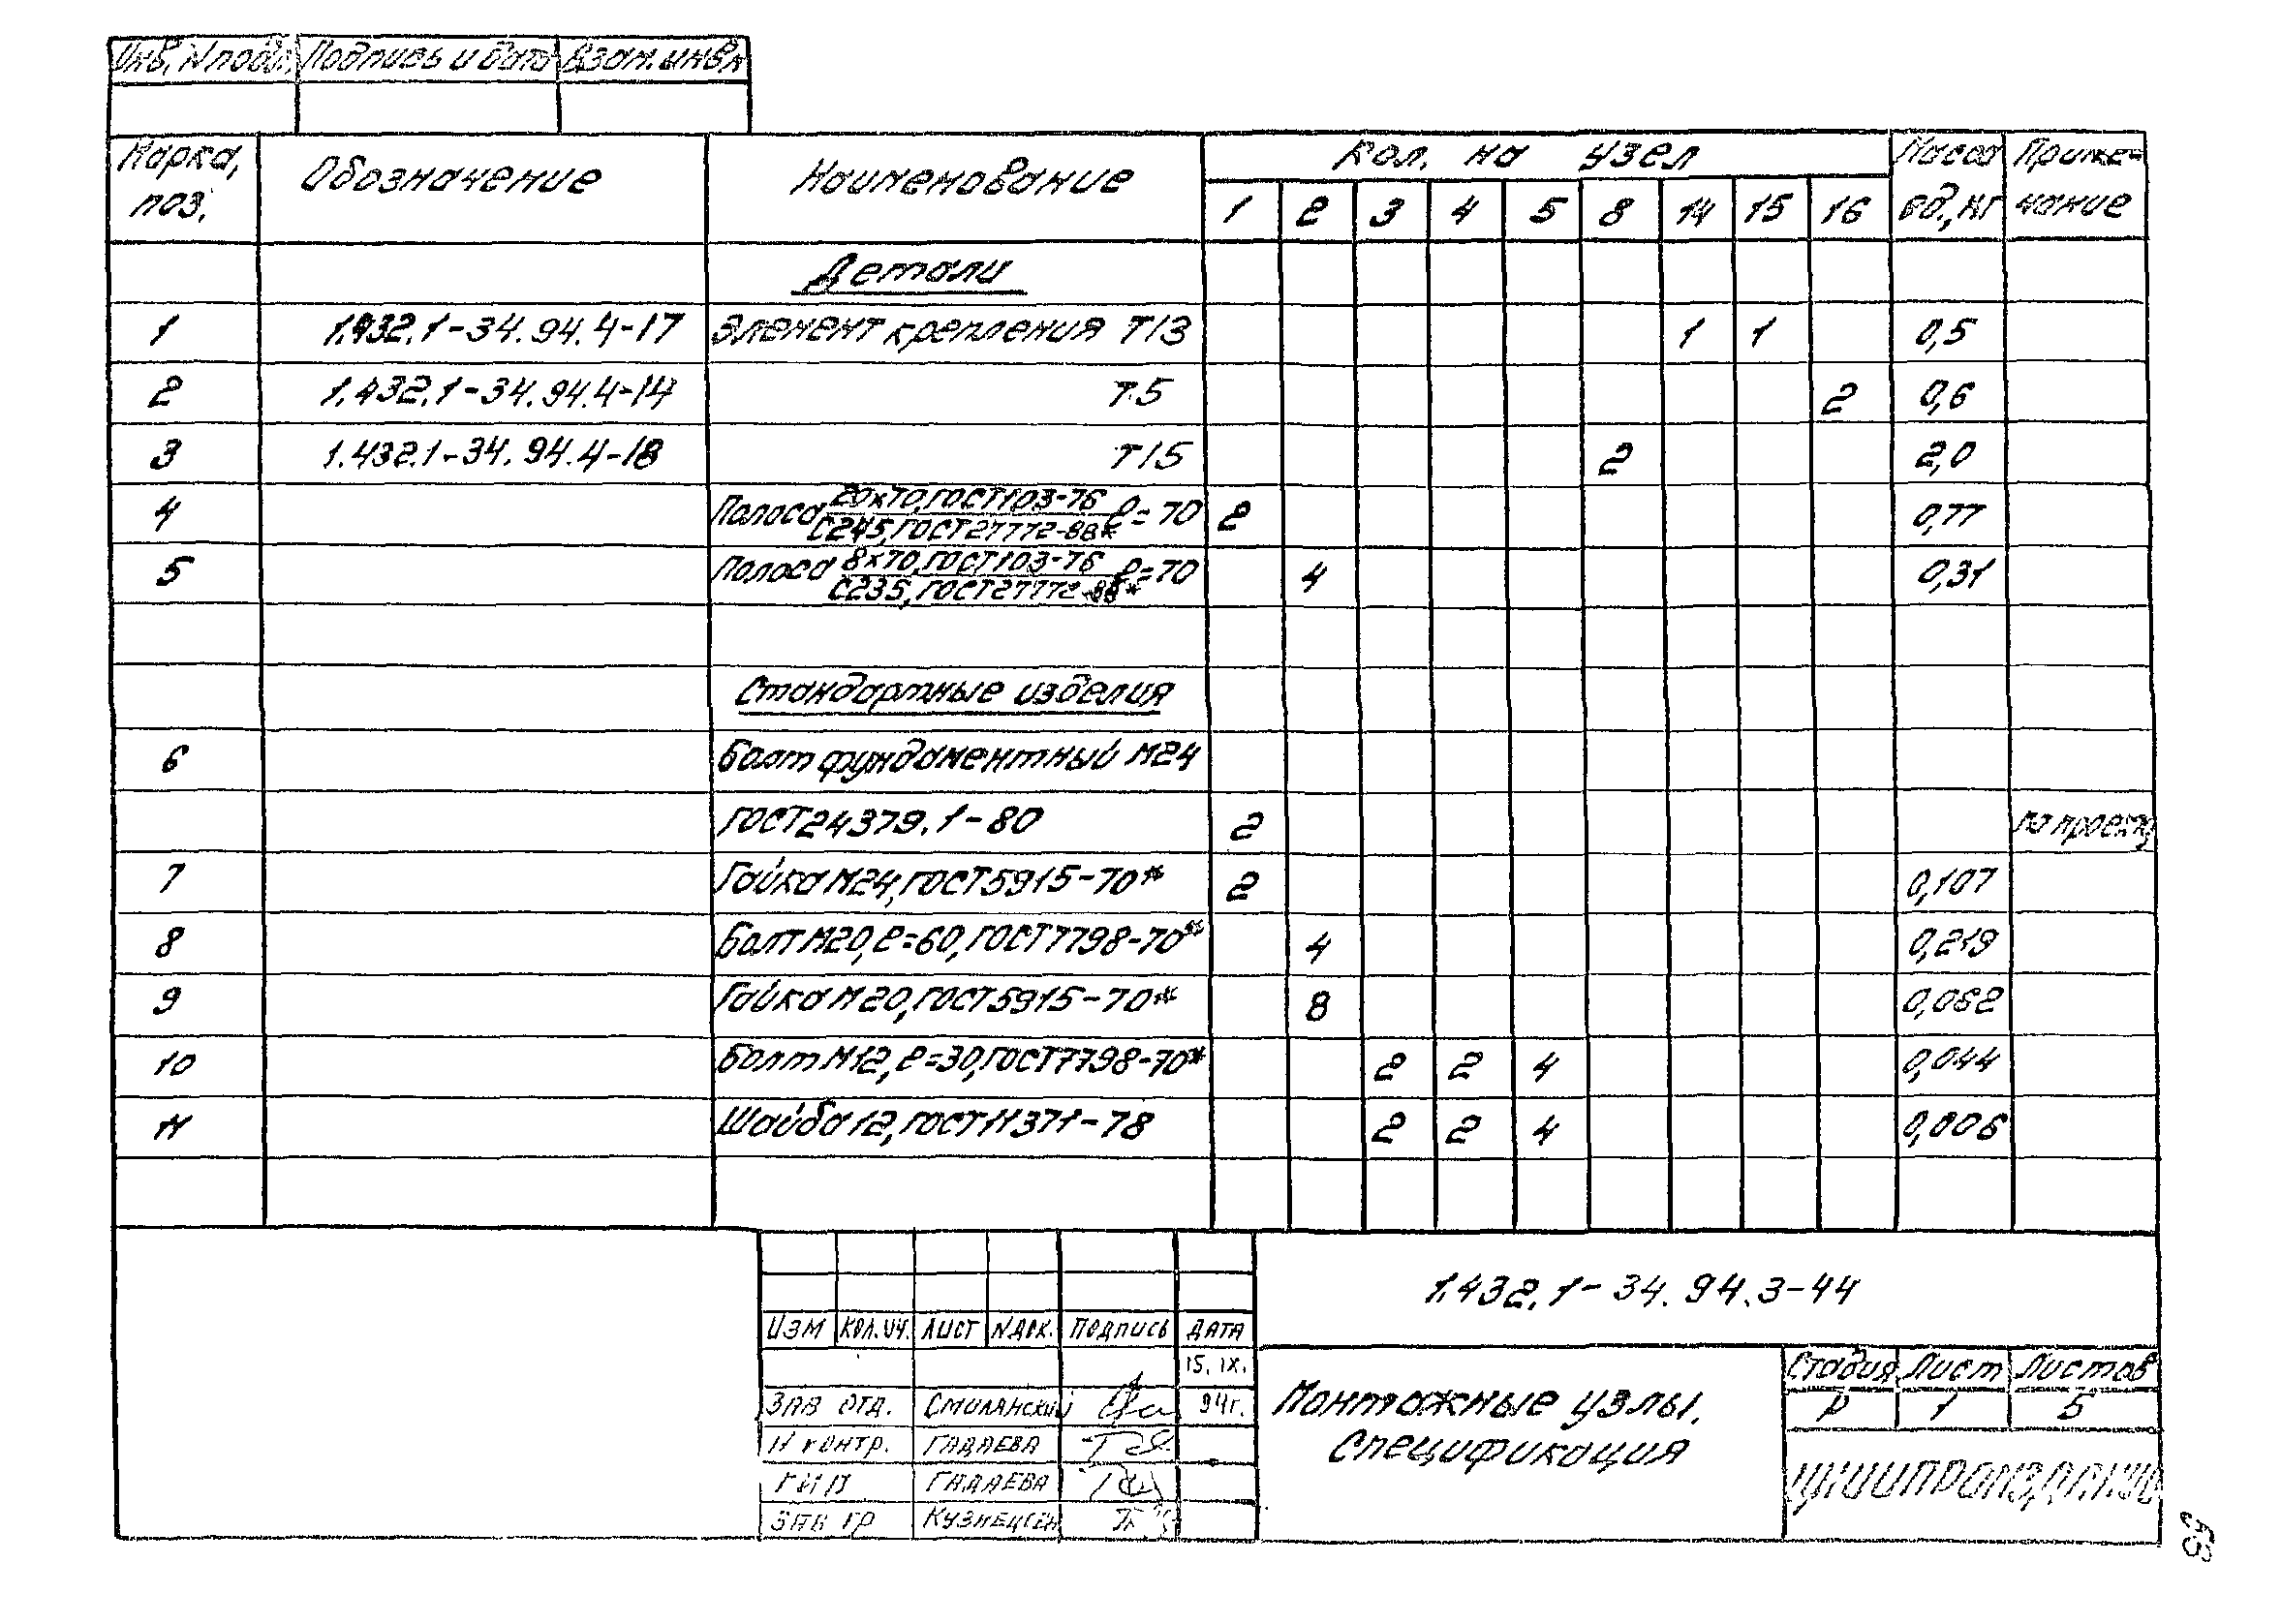 Инв. N подл. Подпись и дата Взам. инв. N
Марка, поз. Обозначение Наименование Кол. на узел Масса ед., кг Приме-чание
1 2 3 4 5 8 14 15 16
Детали
1 1.432.1-34.94.4-17 Элемент крепления Т13 1 1 0,5
2 1.432.1-34.94.4-14 Т5 2 0,6
3 1.432.1-34.94.4-18 Т15 2 2,0
4 Полоса 20х70, ГОСТ 103-76 / С245, ГОСТ 27772-88* ℓ=70 2 0,77
5 Полоса 8х70, ГОСТ 103-76 / С235, ГОСТ 27772-88* ℓ=70 4 0,31
Стандартные изделия
6 Болт фундаментный М24
ГОСТ 24379.1-80 2 по проекту
7 Гайка М24, ГОСТ 5915-70* 2 0,107
8 Болт М20, ℓ=60, ГОСТ 7798-70* 4 0,219
9 Гайка М20, ГОСТ 5915-70* 8 0,062
10 Болт М12, ℓ=30, ГОСТ 7798-70* 2 2 4 0,044
11 Шайба 12, ГОСТ 11371-78 2 2 4 0,006
1.432.1-34.94.3-44
ИЗМ КОЛ.УЧ. ЛИСТ N ДОК. ПОДПИСЬ ДАТА
15.IX.
ЗАВ ОТД. СМИЛЯНСКИЙ 94г.
Н КОНТР. ГАДАЕВА
ГИП ГАДАЕВА
ЗАВ ГР
Монтажные узлы.
Спецификация
Стадия Лист Листов
Р 1 5
ЦНИИПРОМЗДАНИЙ